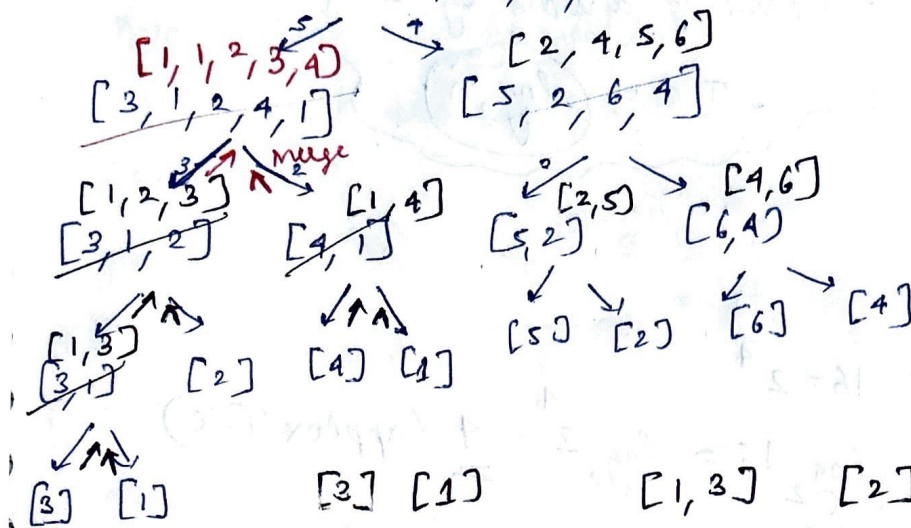 5 4
[1, 1, 2, 3, 4] [2, 4, 5, 6]
[3, 1, 2, 4, 1] [5, 2, 6, 4]
3 merge 2 2
[1, 2, 3] [1, 4] [2,5] [4,6]
[3, 1, 2] [4, 1] [5,2] [6,4]
[1,3] [2] [4] [1] [5] [2] [6] [4]
[3,1]
[3] [1] [3] [1] [1, 3] [2]